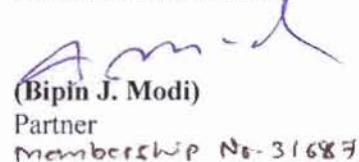 (Bipin J. Modi)
Partner
Membership No. 31687